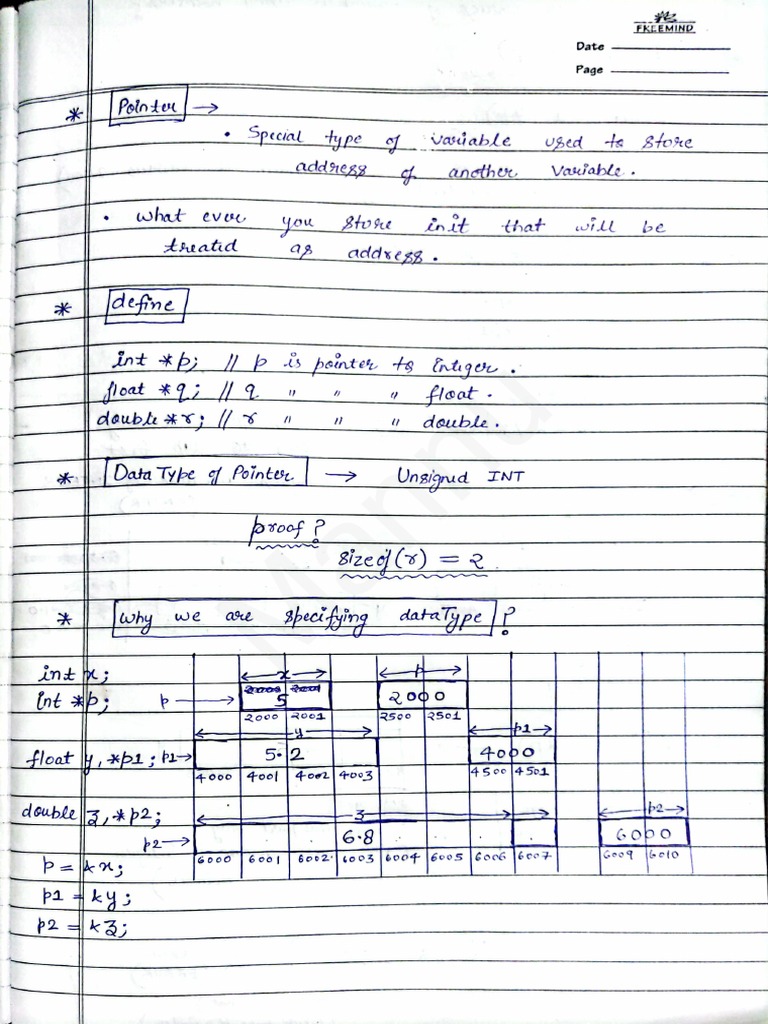 FREEMIND
Date
Page
* Pointer →
• Special type of variable used to store
address of another variable.
• What ever you store in it that will be
treated as address.
* define
int *p; // p is pointer to Integer.
float *q; // q " " " float.
double *r; // r " " " double.
* Data Type of Pointer → Unsigned INT
proof?
sizeof(r) = 2
* Why we are specifying dataType?
int x; x p
int *p; p → 5 2000
2000 2001 2500 2501
y p1
float y, *p1; p1→ 5.2 4000
4000 4001 4002 4003 4500 4501
double z, *p2; z p2
p2→ 6.8 6000
6000 6001 6002 6003 6004 6005 6006 6007 6009 6010
p = &x;
p1 = &y;
p2 = &z;